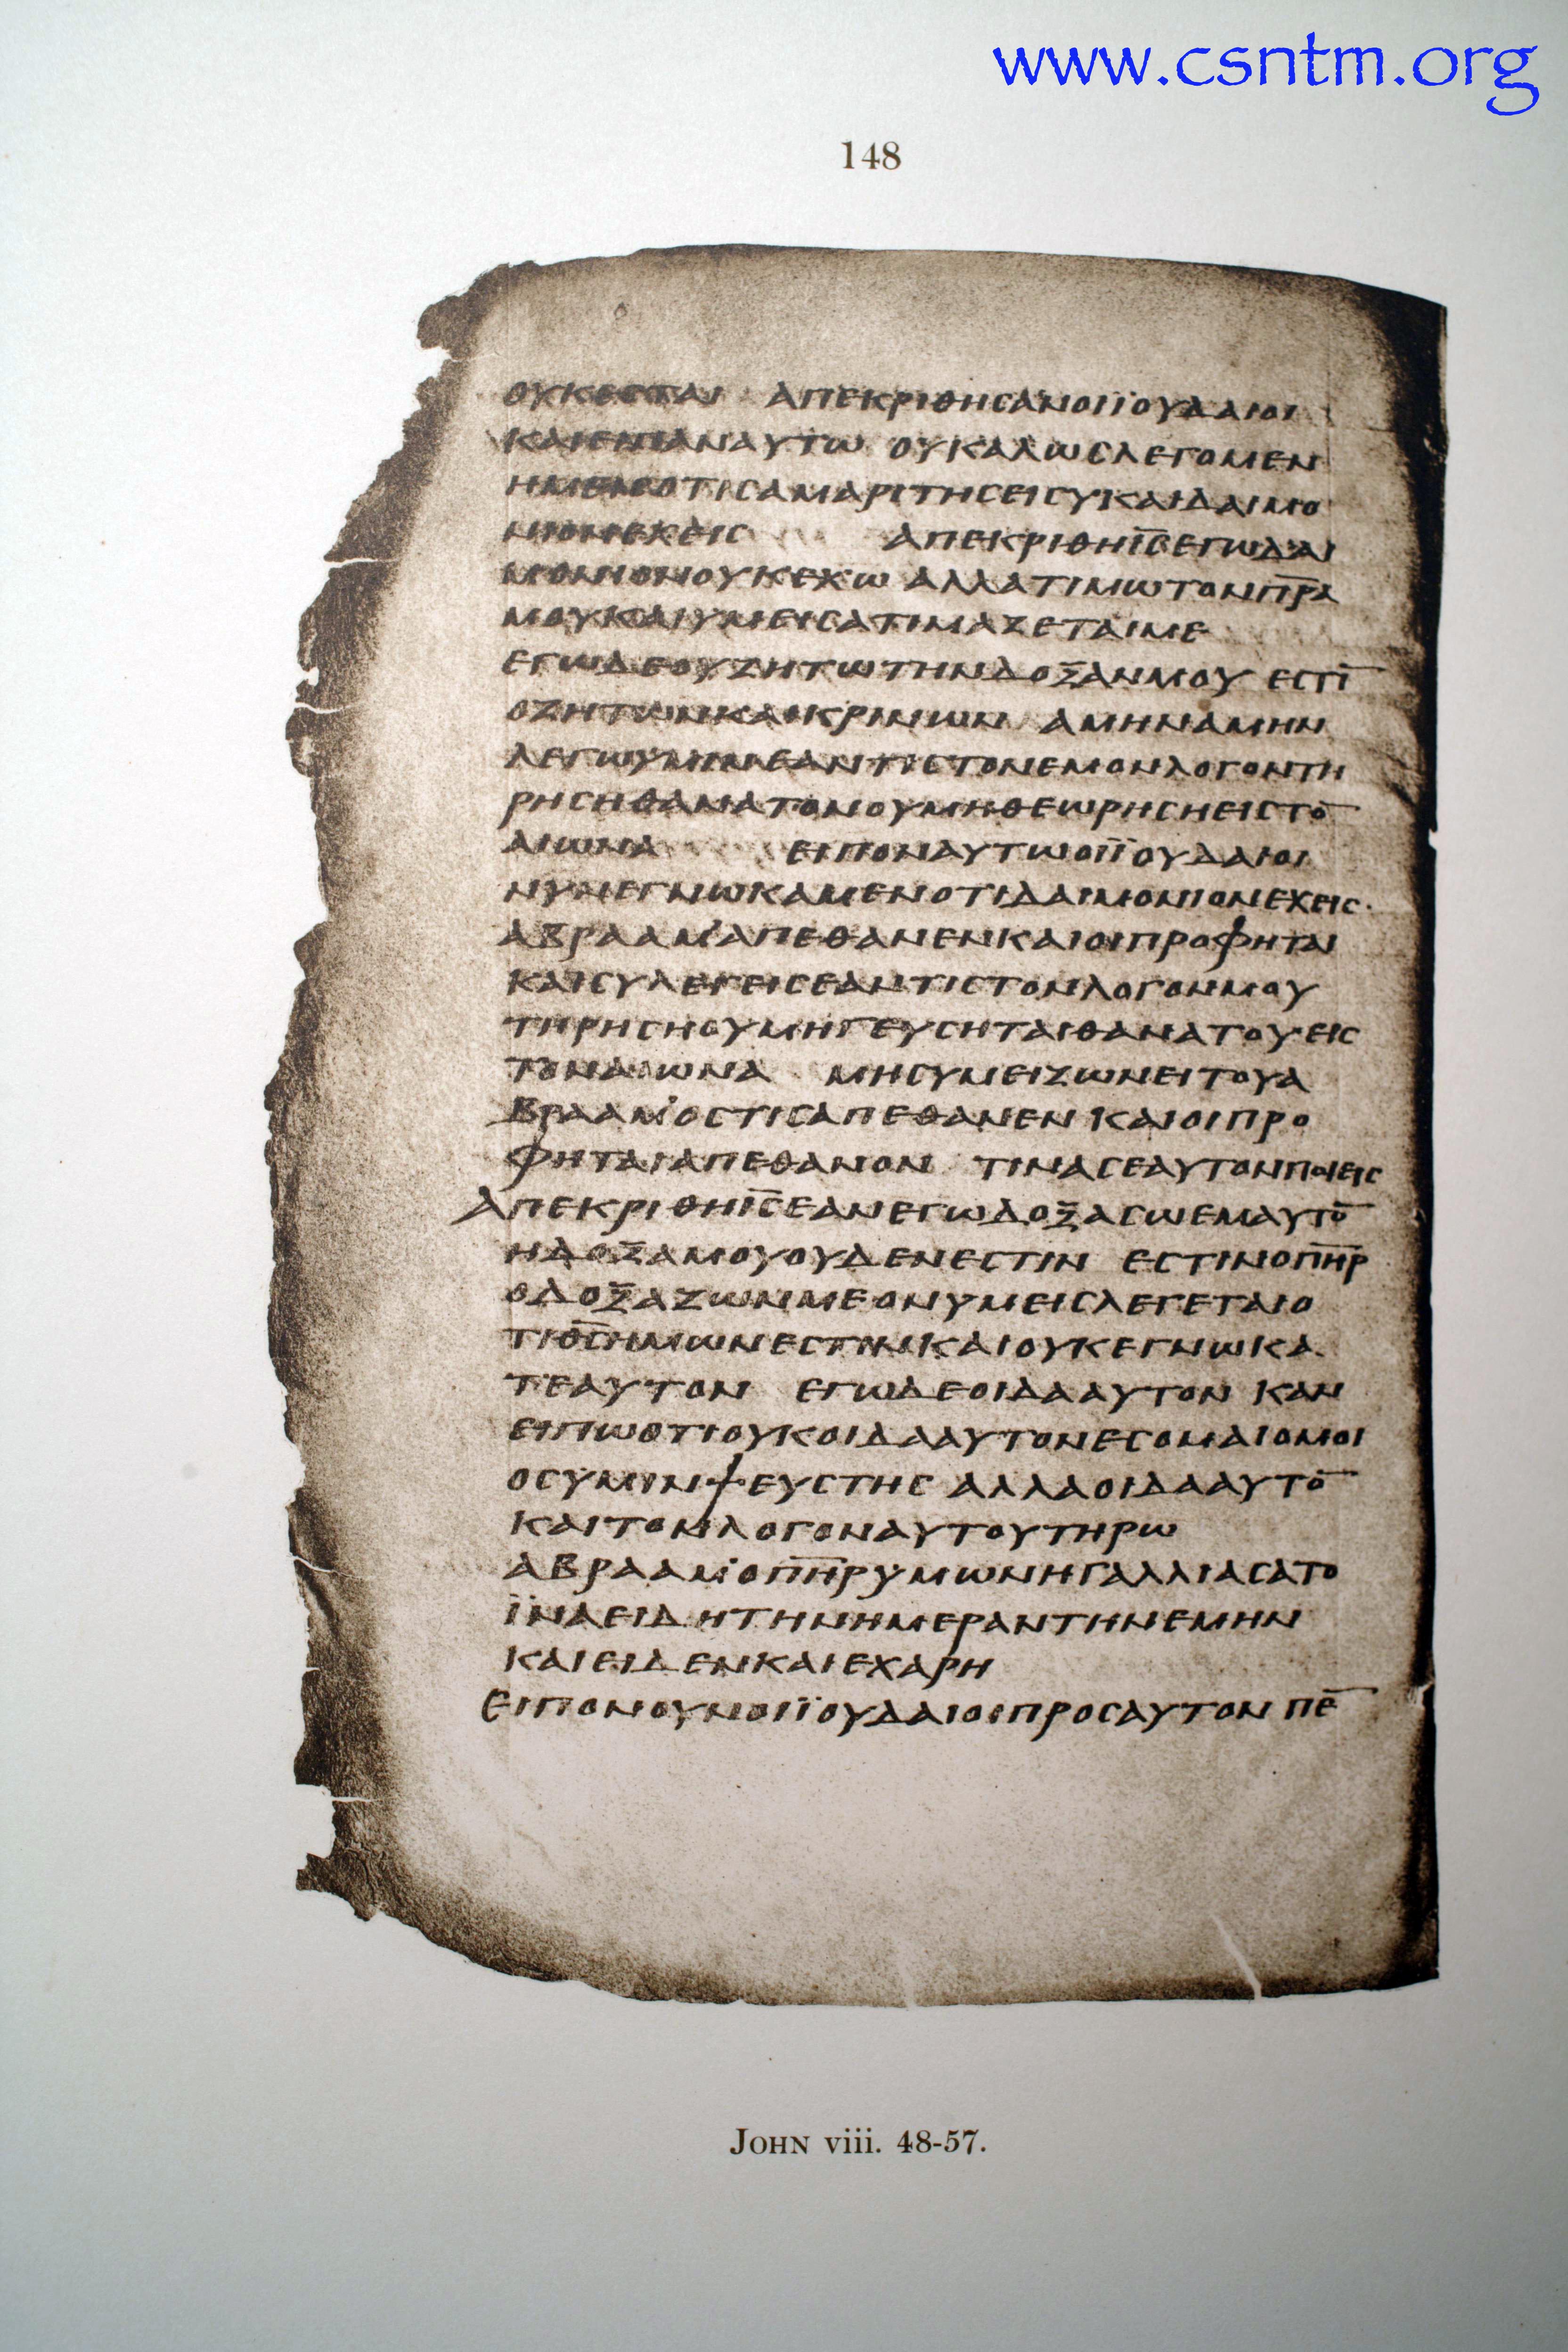 www.csntm.org
148
ΟΥΚΕСΤΑΙ ΑΠΕΚΡΙΘΗСΑΝΟΙΪΟΥΔΑΙΟΙ
ΚΑΙΕΙΠΑΝΑΥΤΩ ΟΥΚΑΛΩСΛΕΓΟΜΕΝ
ΗΜΕΙСΟΤΙСΑΜΑΡΙΤΗСΕΙСΥΚΑΙΔΑΙΜΟ
ΝΙΟΝΕΧΕΙС ΑΠΕΚΡΙΘΗΙ̅С̅ΕΓΩΔΑΙ
ΜΟΝΙΟΝΟΥΚΕΧΩ ΑΛΛΑΤΙΜΩΤΟΝΠ̅Ρ̅Α̅
ΜΟΥΚΑΙΥΜΕΙСΑΤΙΜΑΖΕΤΑΙΜΕ
ΕΓΩΔΕΟΥΖΗΤΩΤΗΝΔΟΞΑΝΜΟΥ ΕСΤΙ̅
ΟΖΗΤΩΝΚΑΙΚΡΙΝΩΝ ΑΜΗΝΑΜΗΝ
ΛΕΓΩΥΜΙΝΕΑΝΤΙСΤΟΝΕΜΟΝΛΟΓΟΝΤΗ
ΡΗСΗΘΑΝΑΤΟΝΟΥΜΗΘΕΩΡΗСΗΕΙСΤΟ̅
ΑΙΩΝΑ ΕΙΠΟΝΑΥΤΩΟΙΪΟΥΔΑΙΟΙ
ΝΥΝΕΓΝΩΚΑΜΕΝΟΤΙΔΑΙΜΟΝΙΟΝΕΧΕΙС·
ΑΒΡΑΑΜ'ΑΠΕΘΑΝΕΝΚΑΙΟΙΠΡΟΦΗΤΑΙ
ΚΑΙСΥΛΕΓΕΙСΕΑΝΤΙСΤΟΝΛΟΓΟΝΜΟΥ
ΤΗΡΗСΗΟΥΜΗΓΕΥСΗΤΑΙΘΑΝΑΤΟΥΕΙС
ΤΟΝΑΙΩΝΑ ΜΗСΥΜΕΙΖΩΝΕΙΤΟΥΑ
ΒΡΑΑΜ'ΟСΤΙСΑΠΕΘΑΝΕΝΚΑΙΟΙΠΡΟ
ΦΗΤΑΙΑΠΕΘΑΝΟΝ ΤΙΝΑСΕΑΥΤΟΝΠΟΙΕΙС
ΑΠΕΚΡΙΘΗΙ̅С̅ΕΑΝΕΓΩΔΟΞΑСΩΕΜΑΥΤΟ̅
ΗΔΟΞΑΜΟΥΟΥΔΕΝΕСΤΙΝ ΕСΤΙΝΟΠ̅Η̅Ρ̅
ΟΔΟΞΑΖΩΝΜΕΟΝΥΜΕΙСΛΕΓΕΤΑΙΟ
ΤΙΘ̅С̅ΗΜΩΝΕСΤΙΝΚΑΙΟΥΚΕΓΝΩΚΑ
ΤΕΑΥΤΟΝ ΕΓΩΔΕΟΙΔΑΑΥΤΟΝ ΚΑΝ
ΕΙΠΩΟΤΙΟΥΚΟΙΔΑΑΥΤΟΝΕСΟΜΑΙΟΜΟΙ
ΟСΥΜΙΝΨΕΥСΤΗС ΑΛΛΑΟΙΔΑΑΥΤΟ̅
ΚΑΙΤΟΝΛΟΓΟΝΑΥΤΟΥΤΗΡΩ
ΑΒΡΑΑΜ'ΟΠ̅Η̅Ρ̅ΥΜΩΝΗΓΑΛΛΙΑСΑΤΟ
ΪΝΑΕΙΔΗΤΗΝΗΜΕΡΑΝΤΗΝΕΜΗΝ
ΚΑΙΕΙΔΕΝΚΑΙΕΧΑΡΗ
ΕΙΠΟΝΟΥΝΟΙΪΟΥΔΑΙΟΙΠΡΟСΑΥΤΟΝΠΕ̅
JOHN viii. 48-57.